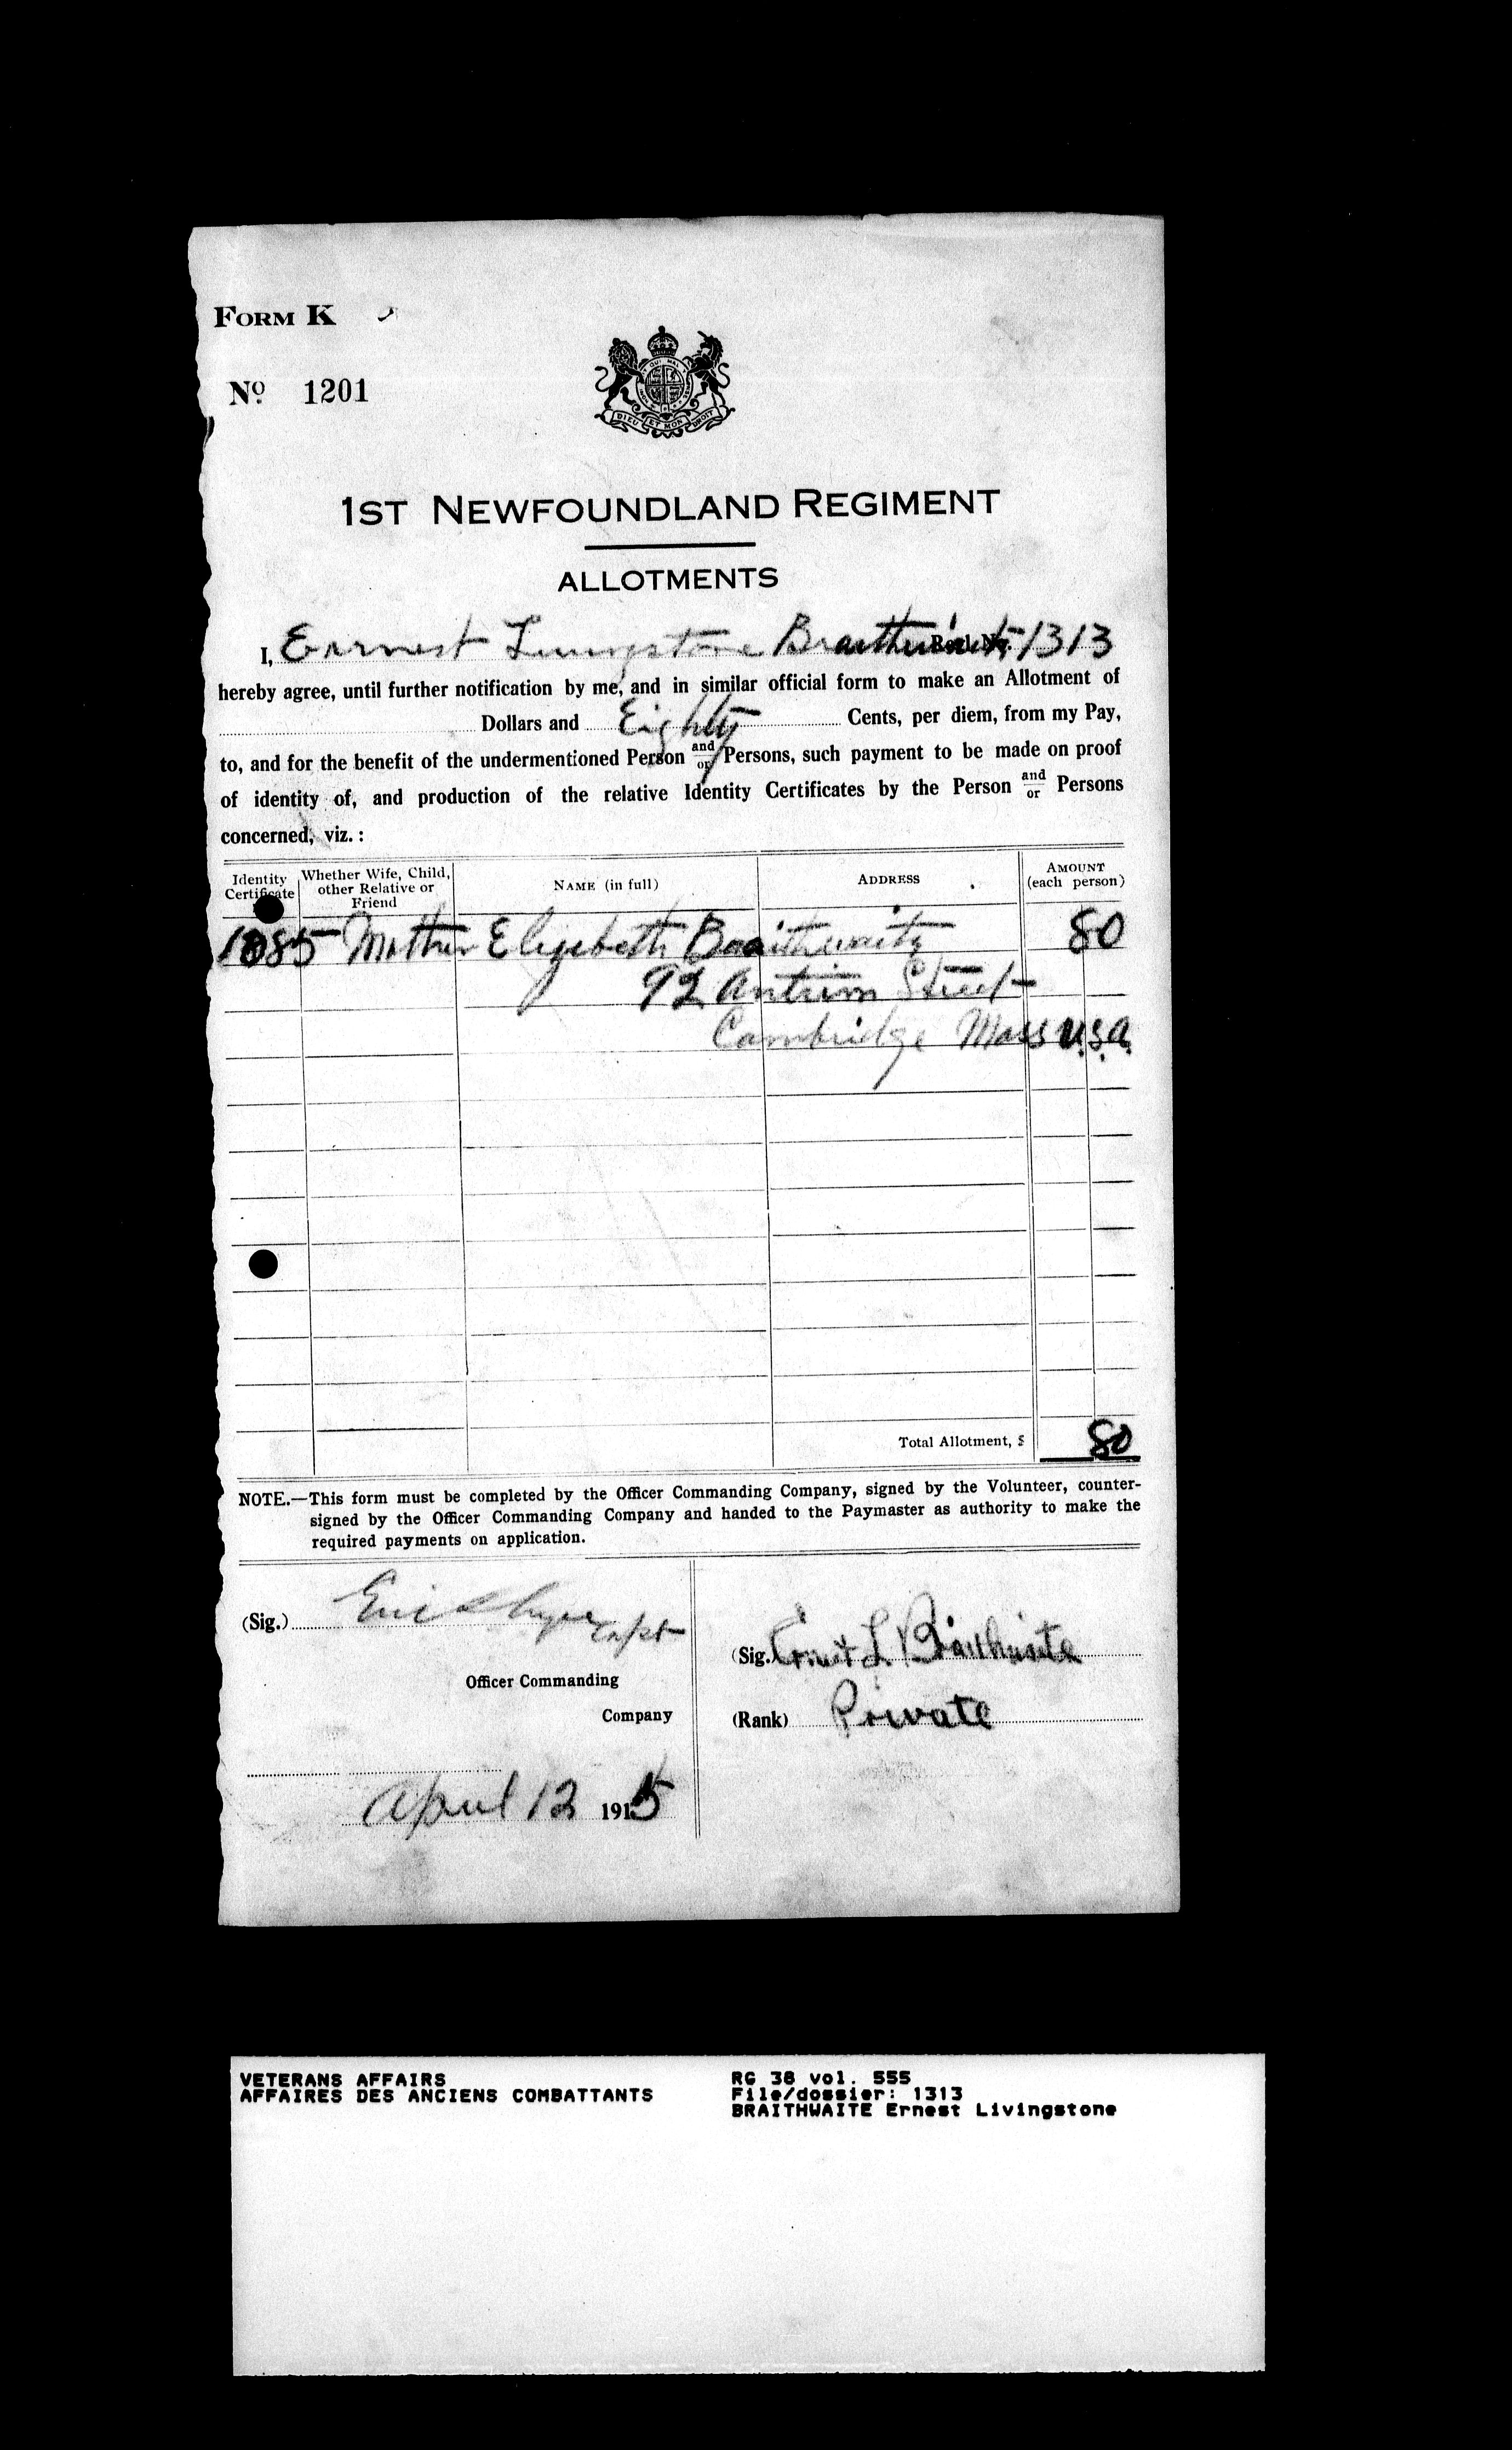 FORM K
No. 1201
DIEU ET MON DROIT
1ST NEWFOUNDLAND REGIMENT
ALLOTMENTS
I, Earnest Livingstone Braithwaite Regl. No. 1313
hereby agree, until further notification by me, and in similar official form to make an Allotment of
Dollars and Eighty Cents, per diem, from my Pay,
to, and for the benefit of the undermentioned Person and/or Persons, such payment to be made on proof
of identity of, and production of the relative Identity Certificates by the Person and/or Persons
concerned, viz. :
Identity Certificate Whether Wife, Child, other Relative or Friend NAME (in full) ADDRESS AMOUNT (each person)
1085 Mother Elizebeth Braithwaite 80
92 Antrim Street
Cambridge Mass U.S.A.
Total Allotment, $ 80
NOTE.—This form must be completed by the Officer Commanding Company, signed by the Volunteer, counter-
signed by the Officer Commanding Company and handed to the Paymaster as authority to make the
required payments on application.
(Sig.) Capt
Officer Commanding
Company
(Sig.) Ernest L Braithwaite
(Rank) Private
April 12 1915
VETERANS AFFAIRS
AFFAIRES DES ANCIENS COMBATTANTS
RG 38 vol. 555
File/dossier: 1313
BRAITHWAITE Ernest Livingstone